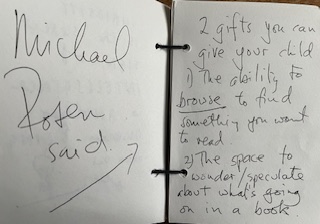 Michael
Rosen
said.
2 gifts you can
give your child
1) The ability to
browse to find
something you want
to read.
2) The space to
wonder/speculate
about what's going
on in a book.